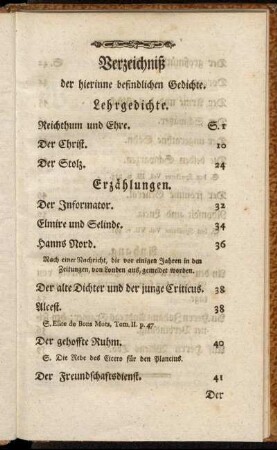 Verzeichniß
der hierinne befindlichen Gedichte.
Lehrgedichte.
Reichthum und Ehre. S. 1
Der Christ. 10
Der Stolz. 24
Erzählungen.
Der Informator. 32
Elmire und Selinde. 34
Hanns Nord. 36
Nach einer Nachricht, die vor einigen Jahren in den
Zeitungen, von London aus, gemeldet worden.
Der alte Dichter und der junge Criticus. 38
Alcest. 38
S. Elite de Bons Mots, Tom. II. p. 47
Der gehoffte Ruhm. 40
S. Die Rede des Cicero für den Plancius.
Der Freundschaftsdienst. 41
Der